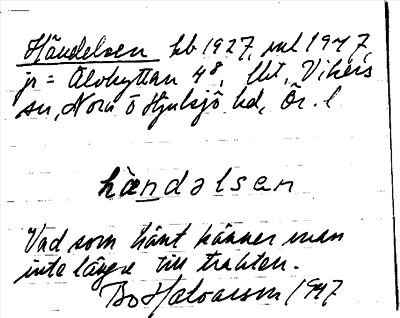 Händelsen kb 1927, ml 1947
jr = Älvhyttan 4⁸, lht, Vikers
sn, Nora o Hjulsjö hd, Ör. l
händəlsen
Vad som hänt känner man
inte längre till trakten.
Bo Halvarson 1947